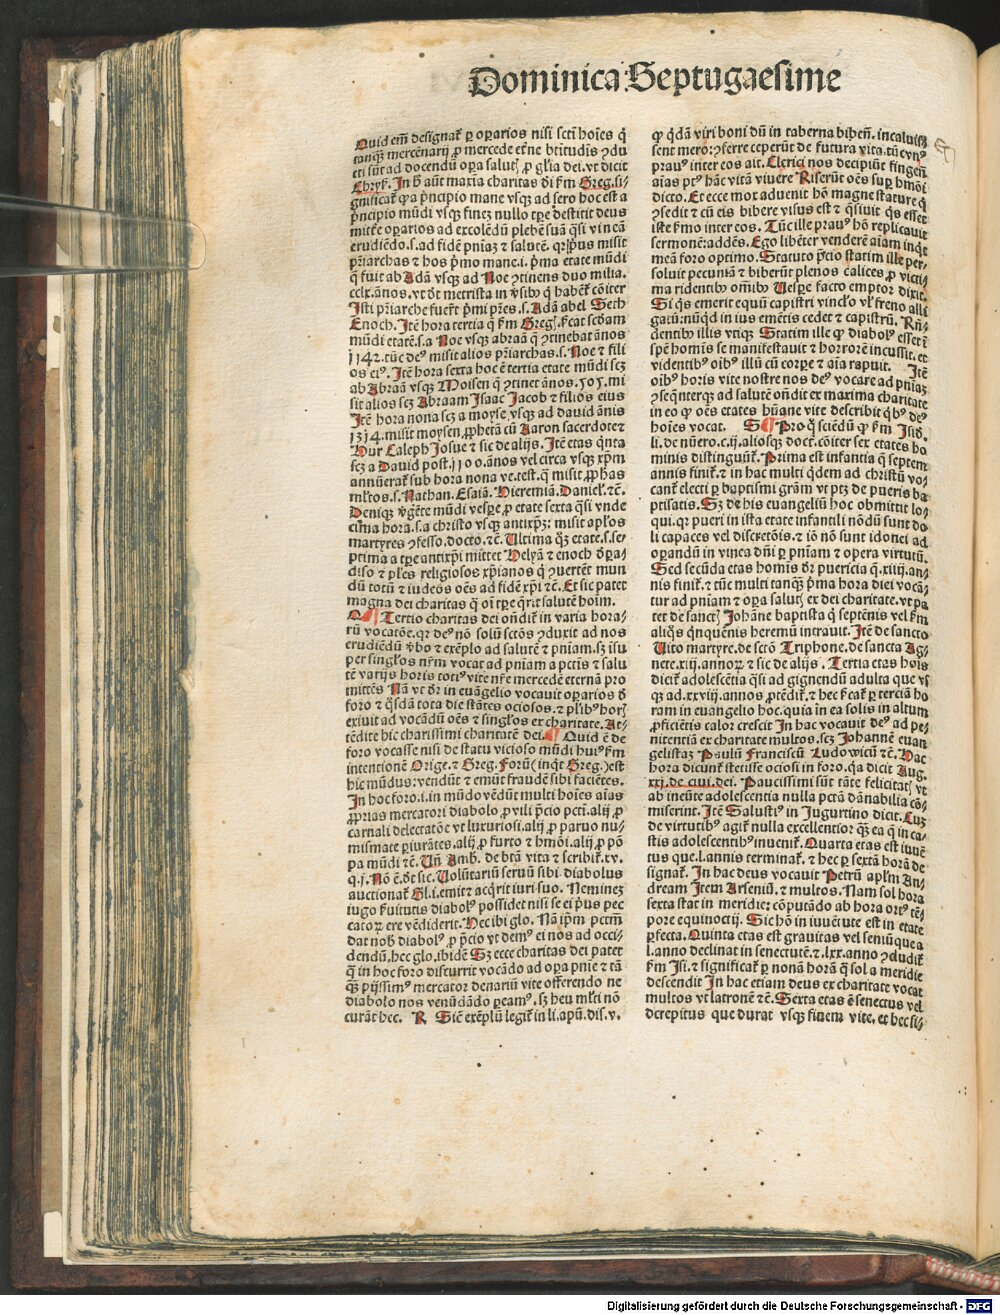 Dominica Septugaesime
Quid em̄ designat̄ ꝑ oꝑarios nisi sctī hoīes q̄
tanqꝫ mercēnarij ꝓ mercede eterne btītudis ꝯdu
cti sūt ad docendū oꝑa salutꝭ ꝓ gl̄ia dei. vt dicit
Chryṡ. In h̄ aūt maxīa charitas dī ẜm Greg. si-
gnificat̄ ꝙ a prīncipio mane vsqꝫ ad sero hoc est a
prīncipio mūdi vsqꝫ finez nullo tꝑe destitit deus
mittere oꝑarios ad excolēdū plebē suā q̄si vineā
erudiēdo. s. ad fidē pnīaꝫ ⁊ salutē. qr̄ prīus misit
prīarchas ⁊ hos prīmo mane. i. prīma etate mūdi
q̄ fuit ab Adā vsqꝫ ad Noe ꝯtinens duo milia.
cclx. ānos. vt dr̄ metrista in v̄sibꝰ q̄ habēt̄ cōiter
Isti prīarche fuerūt prīmi pr̄es. s. Adā abel Seth
Enoch. Itē hora tertia q̄ ẜm Greg. ẜcat scd̄am
mūdi etatē. s. a Noe vsqꝫ abraā q̄ ꝯtinebat ānos
1142. tūc deꝰ misit alios prīarchas. s. Noe ⁊ fili
os eiꝰ. Itē hora sexta hoc ē tertia etate mūdi scꝫ
ab Abraā vsqꝫ Moisen q̄ ꝯtinet ānos. 505. mi
sit alios scꝫ Abraam Isaac Jacob ⁊ filios eius
Itē hora nona scꝫ a moyse vsqꝫ ad dauid ānis
1314. misit moysen, ꝓphetā cū Aaron sacerdote ⁊
Hur Caleph Josue ⁊ sic de alijs. Itē etas q̄nta
scꝫ a Dauid post. 1100. ānos vel circa vsqꝫ xp̄m
annūerat̄ sub hora nona ve. test. q̄ misit ꝓphās
ml̄tos. s. Nathan. Esaiā. Hieremiā. Daniel. ⁊c̄.
Deniqꝫ v̄gēte mūdi vespe ꝓ etate sexta q̄si vnde
cima hora. s. a christo vsqꝫ antixp̄ꝫ: misit apl̄os
martyres ꝯfesso. docto. ⁊c̄. Ultima qꝫ etate. s. se-
ptima a tꝑe antixp̄i mittet Helyā ⁊ enoch d̄ para-
diso ⁊ pl̄es religiosos xp̄ianos q̄ ꝯuertēt mun
dū totū ⁊ iudeos oēs ad fidē xp̄i ⁊c̄. Et sic patet
magna dei charitas q̄ oī tꝑe q̄rit salutē hoīm.
Tertio charitas dei ondit̄ in varia hora-
rū vocatōe. qr̄ deꝰ nō solū sctōs ꝯduxit ad nos
erudiēdū v̄bo ⁊ exēplo ad salutē ⁊ pnīam. sꝫ īsu
per singl̄os nr̄m vocat ad pniam a pctīs ⁊ salu
tē varijs horis totiꝰ vite nr̄e mercedē eternā pro
mittēs Nā vt dr̄ in euāgelio vocauit oꝑarios d̄
foro ⁊ q̄sdā tota die stātes ociosos. ⁊ pl̄ibꝰ horꝭ
exiuit ad vocādū oēs ⁊ singl̄os ex charitate. At-
tēdite hic charissimi charitatē dei. Quid ē de
foro vocasse nisi de statu vicioso mūdi huiꝰ ẜm
intentionē Orige. ⁊ Greg. Forū (inqt Greg.) est
hic mūdus: vendūt ⁊ emūt fraudē sibi faciētes.
In hoc foro. i. in mūdo vēdūt multi hoīes aīas
ꝓprias mercatori diabolo, ꝓ vili prīcio pctī. alij ꝓ
carnali delectatōe vt luxuriosi. alij ꝓ paruo nu-
mismate ꝑiurātes. alij ꝓ furto ⁊ hmōi. alij ꝓ pō
pa mūdi ⁊c̄. Uñ Amb. de btā vita ⁊ scribit̄. xv.
q. j. Nō ē. dt sic. Uolūtariū seruū sibi diabolus
auctionat̄ Gl. i. emit ⁊ acq̄rit iuri suo. Neminez
iugo ẜuitutis diabolꝰ possidet nisi se ei prīus pec
catoꝝ ere vēdiderit. Hec ibi glo. Nā ip̄m pctm̄
dat nob̄ diabolꝰ ꝓ prīcio vt demꝰ ei nos ad occi
dendū. hec glo. ibidē Sꝫ ecce charitas dei patet
q̄ in hoc foro discurrit vocādo ad oꝑa pnīe ⁊ tā
qꝫ pijssimꝰ mercator denariū vite offerendo ne
diabolo nos venūdādo ꝑeamꝰ. sꝫ heu ml̄ti nō
curāt hec. R Sic̄ exēplū legit̄ in li. apū. dis. v.
ꝙ q̄dā viri boni dū in taberna bibeñ. incaluis-
sent mero: ꝯferre ceperūt de futura vita. tūc vnꝰ
prauꝰ inter eos ait. Clerici nos decipiūt fingeñ
aīas ptꝰ hāc vitā viuere Riserūt oēs suꝑ hmōi
dicto. Et ecce mox aduenit hō magne stature q̄
ꝯsedit ⁊ cū eis bibere visus est ⁊ q̄siuit qs̄ esset
iste ẜmo inter eos. Tūc ille prauꝰ hō replicauit
sermonē: addēs. Ego libēter venderē aīam inqt
meā foro optimo. Statuto prīcio statim ille per-
soluit pecuniā ⁊ biberūt plenos calices, ꝓ victi-
ma ridentibꝰ om̄ibꝰ Uespe facto emptor dixit.
Si qs̄ emerit equū capistri vinclō vl̄ freno alli
gatū: nūqd in ius emētis cedet ⁊ capistrū. Rn̄-
dentibꝰ illis vtiqꝫ Statim ille ꝙ diabolꝰ esset ī
spē homis se manifestauit ⁊ horrorē incussit. et
videntibꝰ oībꝰ illū cū corꝑe ⁊ aīa rapuit. Itē
oībꝰ horis vite nostre nos deꝰ vocare ad pnīaꝫ
ꝯseq̄nterqꝫ ad salutē ondit ex maxima charitate
in eo ꝙ oēs etates hūane vite describit q̄bꝰ deꝰ
hoīes vocat. Pro q̄ sciēdū ꝙ ẜm Isid.
li. de nūero. c. ij. aliosqꝫ doct. cōiter sex etates ho
minis distinguūt̄. Prima est infantia q̄ septem
annis finit̄. ⁊ in hac multi q̄dem ad christū vo-
cant̄ electi ꝑ baptismi grām vt ptꝫ de pueris ba
ptisatis. Sꝫ de his euangeliū hoc obmittit lo-
qui. qr̄ pueri in ista etate infantili nōdū sunt do
li capaces vel discretōis. ⁊ iō nō sunt idonei ad
oꝑandū in vinea dn̄i ꝑ pnīam ⁊ opera virtutū.
Sed secūda etas homis dr̄ puericia q. xiiij. an-
nis finit̄. ⁊ tūc multi tanqꝫ prīma hora diei vocā-
tur ad pniam ⁊ oꝑa salutꝭ ex dei charitate. vt pa
tet de sanctꝭ Johāne baptista q̄ septēnis vel ẜm
aliq̄s q̄nquēnis heremū intrauit. Itē de sancto
Uito martyre. de sctō Triphone. de sancta Ag-
nete. xiij. annoꝝ ⁊ sic de alijs. Tertia etas hoīs
dicit̄ adolescētia q̄si ad gignendū adulta que vs
qꝫ ad. xxviij. annos ꝓtēdit̄. ⁊ hec ẜcat̄ ꝑ terciā ho
ram in euangelio hoc. quia in ea solis in altum
ꝓficiētis calor crescit In hac vocauit deꝰ ad pe-
nitentiā ex charitate multos. scꝫ Johannē euan
gelistaꝫ Paulū Franciscū Ludowicū ⁊c̄. Hac
hora dicunt̄ stetisse ociosi in foro. qa dicit Aug.
xxj. de ciui. dei. Paucissimi sūt tāte felicitatꝭ vt
ab ineūte adolescentia nulla pctā dānabilia cō-
miserint. Itē Salustiꝰ in Jugurtino dicit. Cuꝫ
de virtutibꝰ agit̄ nulla excellentior qꝫ ea q̄ in ca-
stis adolescentibꝰ inuenit̄. Quarta etas est iuuē
tus que. l. annis terminat̄. ⁊ hec ꝑ sextā horā de
signat̄. In hac deus vocauit Petrū apl̄m An-
dream Item Arseniū. ⁊ multos. Nam sol hora
sexta stat in meridie: cōputādo ab hora ortꝰ tē-
pore equinoctij. Sic hō in iuuētute est in etate
ꝑfecta. Quinta etas est grauitas vel seniū que a
l. anno declinat in senectutē. ⁊. lxx. anno ꝯcludit̄
ẜm Isi. ⁊ significat̄ ꝑ nonā horā q̄ sol a meridie
descendit In hac etiam deus ex charitate vocat
multos vt latronē ⁊c̄. Sexta etas ē senectus vel
decrepitus que durat vsqꝫ finem vite. et hec si-
Digitalisierung gefördert durch die Deutsche Forschungsgemeinschaft - DFG